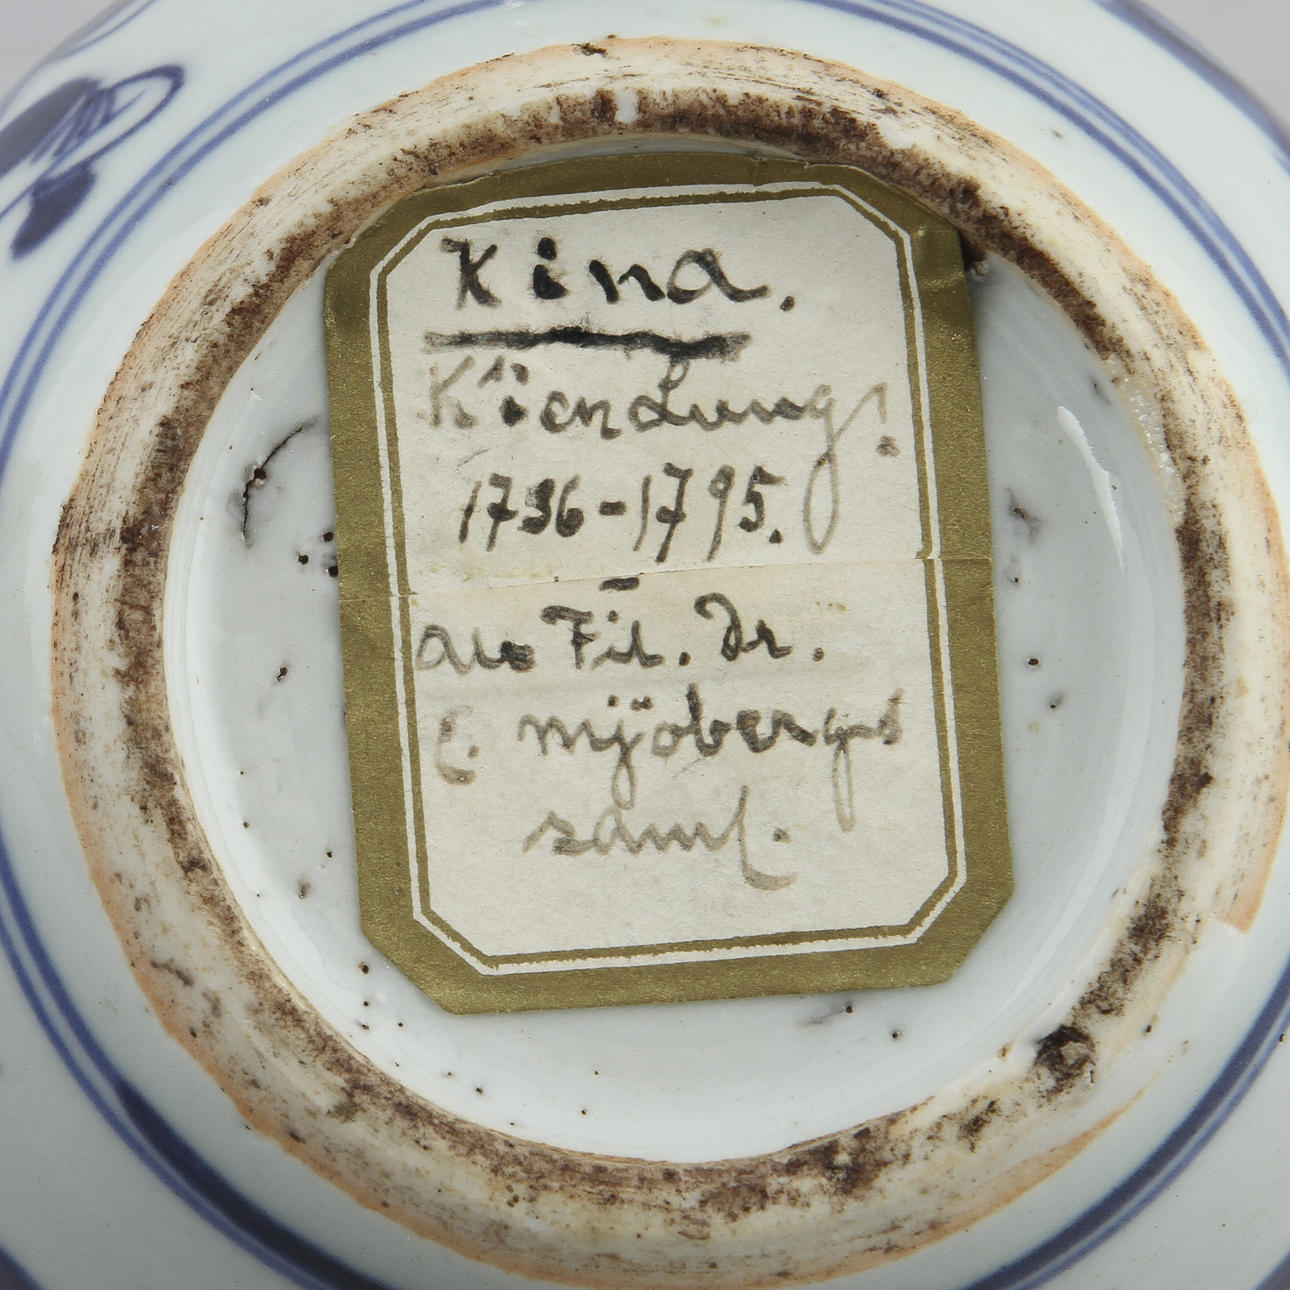 Kina.
Kienlung!
1736-1795.
av Fil. Dr.
E. Mjöbergs
saml.